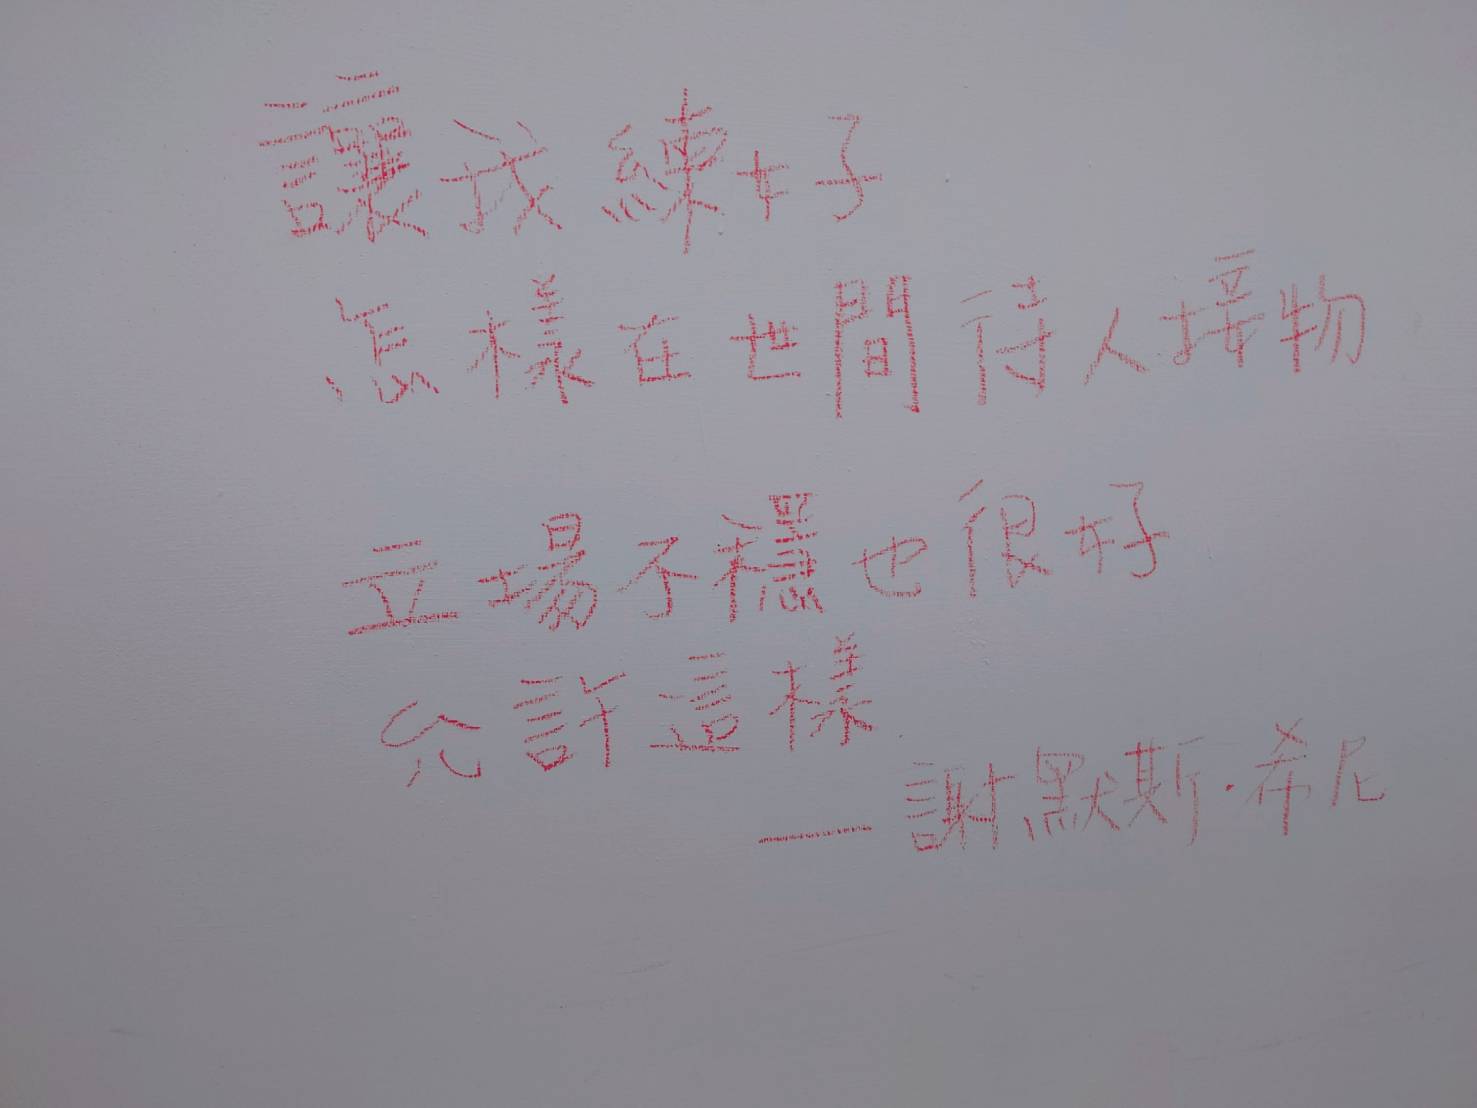 讓我練好
怎樣在世間待人接物
立場不穩也很好
允許這樣
—謝默斯·希尼